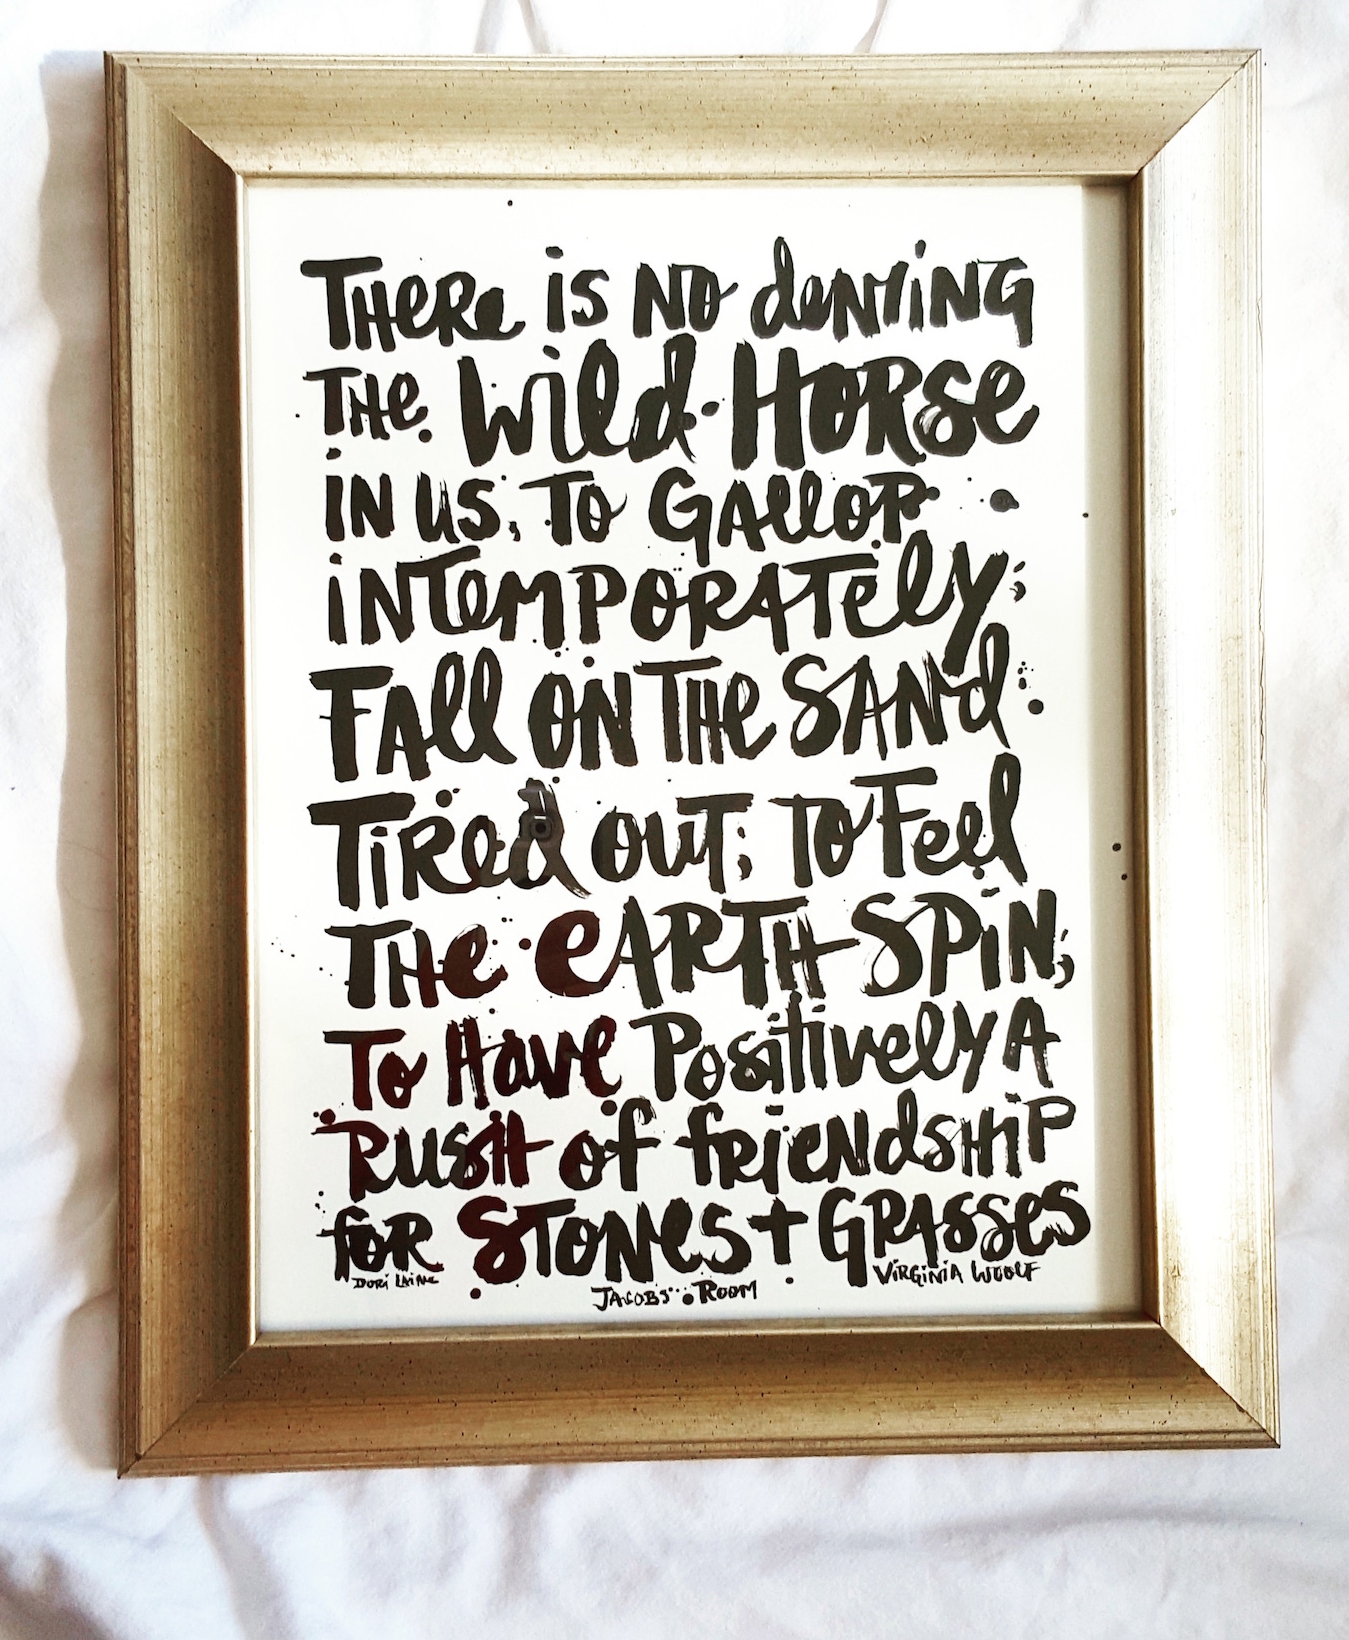 THERE is NO denying
THE Wild HORSE
iN us; TO GALLOP
iNTEMPORATELY;
FALL ON THE SAND
TiRed OUT; TO Feel
THE eARTH SPiN;
To Have Positively A
RUSH of friendship
for STONES + GRASSES
Dori Laine
VIRGINIA WOOLF
JACOBS' ROOM